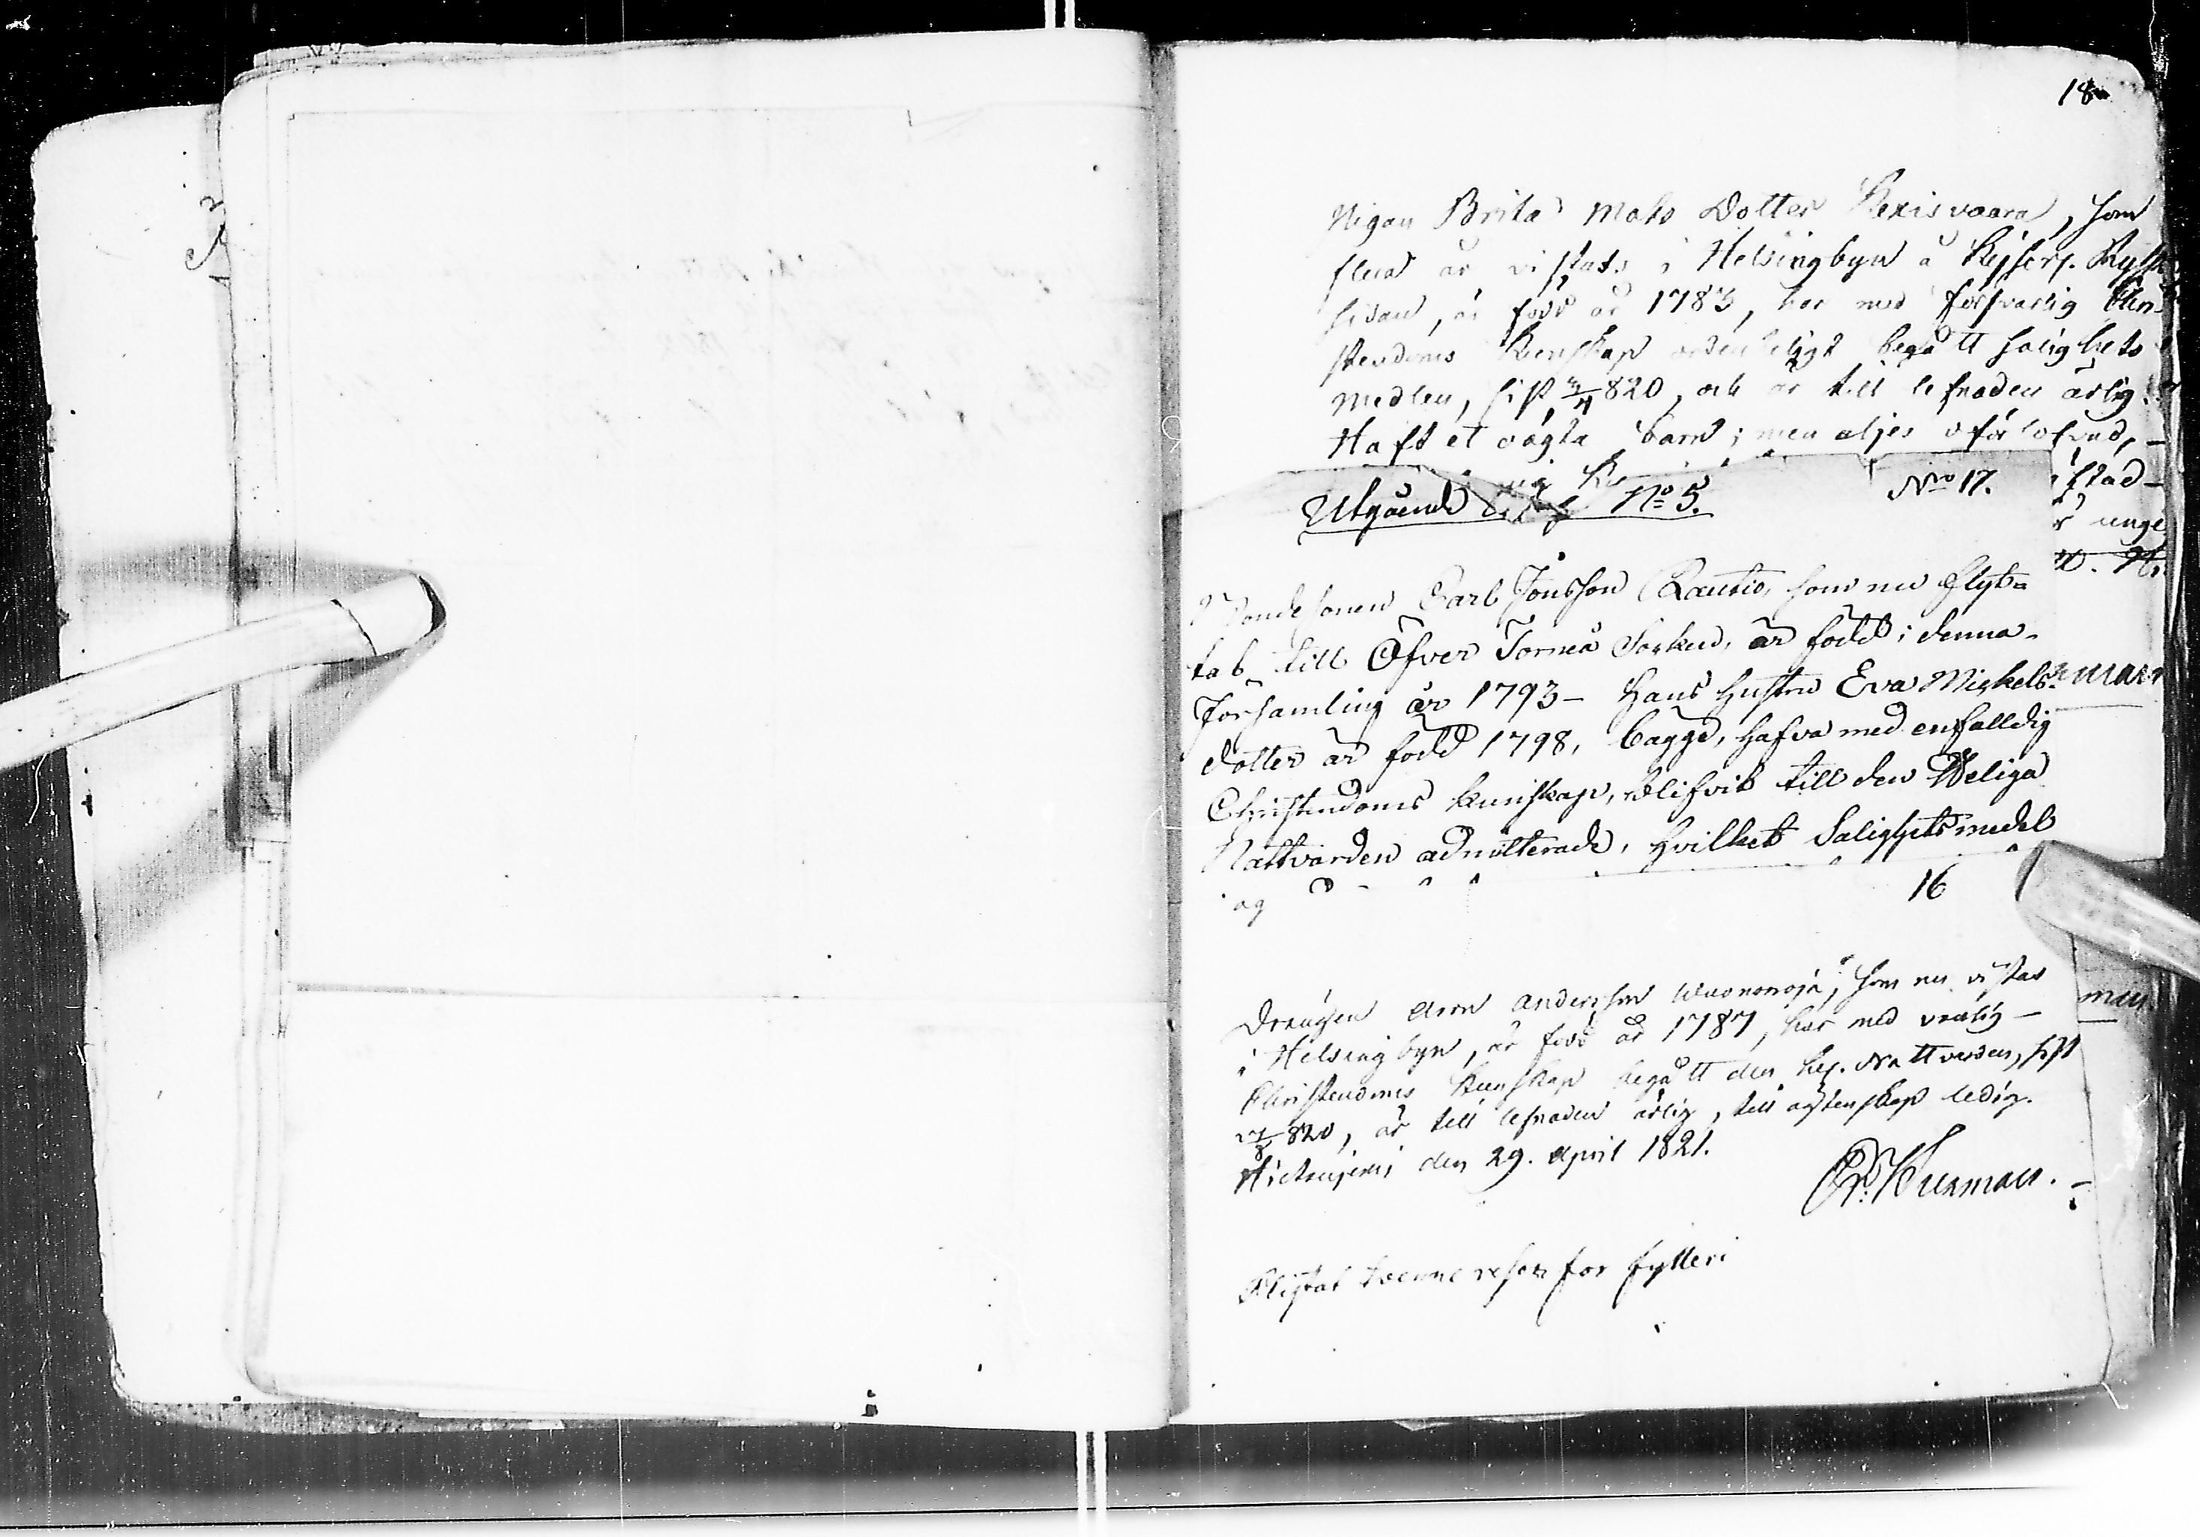 18
Pigan Brita Mats Dotter Kexisvaara, som
flera år vistats i Helsingbyn å Kejserl. Ryska
sidan, är född år 1783, har med försvarlig Chri-
stendoms Kunskap ordenteligt begått salighets
medlen, sist 3/4 820, och är till lefnaden ärlig.
Haft et oägta barn; men eljes oförlofvad,
Utgående No 5.
Nro 17.
stad-
unge
Bondesonen Carl Jönsson Rautio, som nu flyt-
tat till Öfver Torneå Socken, är född i denna
Församling år 1793 – Hans hustru Eva Mickels-
dotter är född 1798, bägge, hafva med enfalldig
Christendoms kunskap, blifvit till den Heliga
Nattvarden admitterade, hvilket Salighetsmedel
16
Drängen Aron Andersson Wuonoroja, som nu vistas
i Helsingbyn, är född år 1787, har med vanlig
Christendoms Kunskap begått den hel. Nattvarden, sist
820, är till lefnaden ärlig, till ägtenskap ledig.
Hietaniemi den 29. April 1821.
Er. Burman.
Pligtat tvenne resor for fylleri